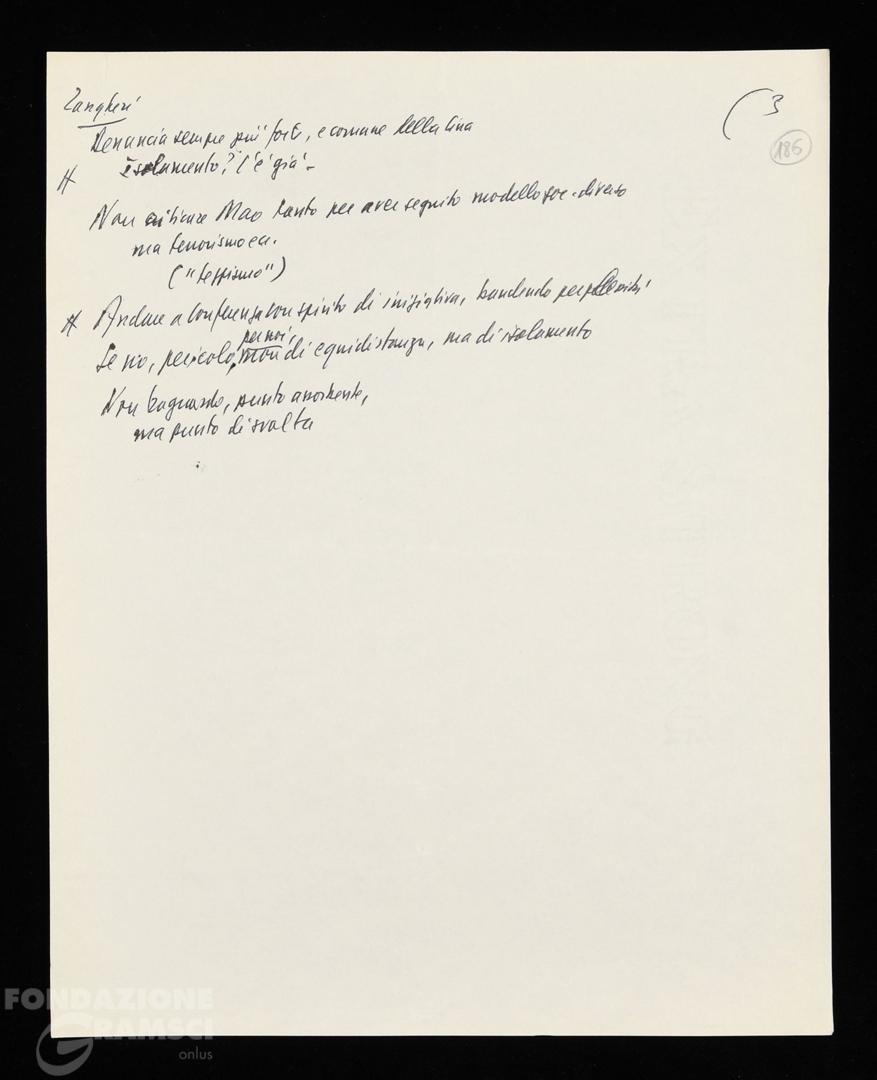 Zangheri
(3
186
Denuncia sempre più forte, e comune della Cina
# Isolamento? C'è già.
Non criticare Mao tanto per aver seguito modello soc. diverso
ma terrorismo ecc.
("teppismo")
# Andare a Conferenza con spirito di iniziativa, bandendo perplessità
Se no, pericolo, per noi, non di equidistanza, ma di isolamento
Non traguardo, punto
ma punto di svolta
FONDAZIONE
GRAMSCI
onlus